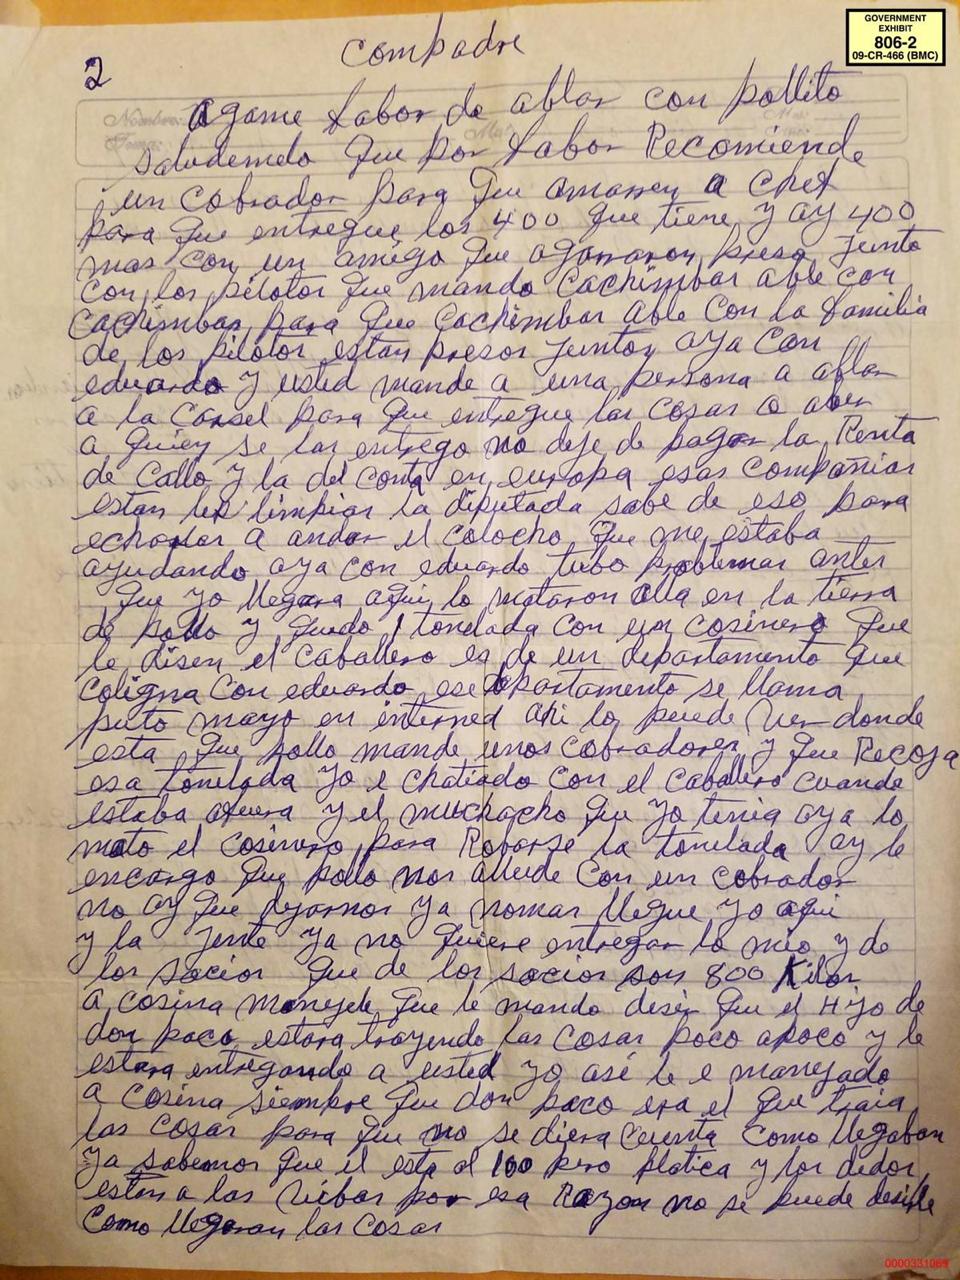 GOVERNMENT
EXHIBIT
806-2
09-CR-466 (BMC)
2
compadre
agame fabor de ablar con pollito
saludemelo que por fabor Recomiende
un cobrador para que amarren a chef
para que entregue los 400 que tiene y ay 400
mas con un amigo que agarraron preso junto
con los pilotos que mando cachimbar able con
cachimbar para que cachimbar able con la familia
de los pilotos estan presos juntos aya con
eduardo y usted mande a una persona a ablar
a la carsel para que entregue las cosas o aber
a quien se las entrego no deje de pagar la Renta
de Callo y la del conta en europa esas compañias
estan limpias la diputada sabe de eso para
echarlas a andar el colocho que me estaba
ayudando aya con eduardo tubo problemas antes
que yo llegara aqui lo mataron alla en la tierra
de pollo y quedo 1 tonelada con un cosinero que
le disen el caballero es de un departamento que
coligna con eduardo ese departamento se llama
puto mayo en interned ahi lo puede ver donde
esta que pollo mande unos cobradores y que Recoja
esa tonelada yo e chatiado con el caballero cuando
estaba afuera y el muchacho que yo tenia aya lo
mato el cosinero para Robarse la tonelada ay le
encargo que pollo nos allude con un cobrador
no ay que dejarnos ya nomas llegue yo aqui
y la jente ya no quiere entregar lo mio y de
los socios que de los socios son 800 Kilos
a cosina manejele que le mando desir que el Hijo de
don paco estara trayendo las cosas poco apoco y le
estara entregando a usted yo asi le e manejado
a cosina siempre que don paco era el que traia
las cosas para que no se diera cuenta como llegaban
ya sabemos que el esta al 100 pero platica y los dedos
estan a las vibas por esa Razon no se puede desirle
como llegaran las cosas
0000331069